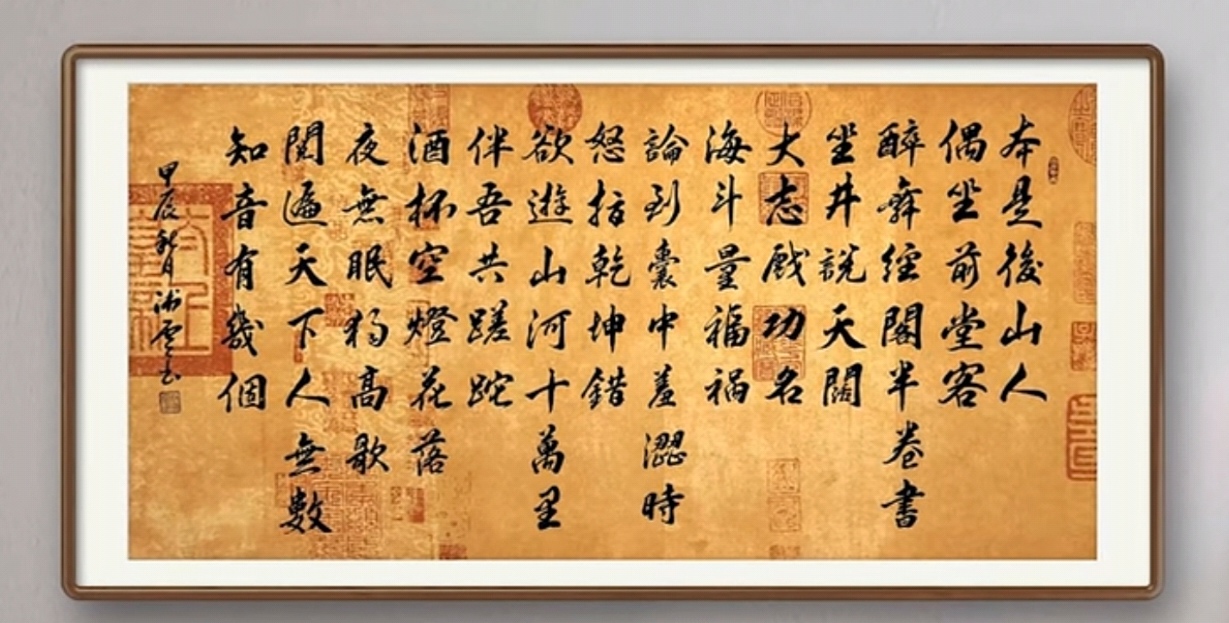 本是後山人
偶坐前堂客
醉舞經閣半卷書
坐井說天闊
大志戲功名
海斗量福禍
論到囊中羞澀時
怒指乾坤錯
欲遊山河十萬里
伴吾共蹉跎
酒杯空燈花落
夜無眠獨高歌
閱遍天下人無數
知音有幾個
甲辰秋月